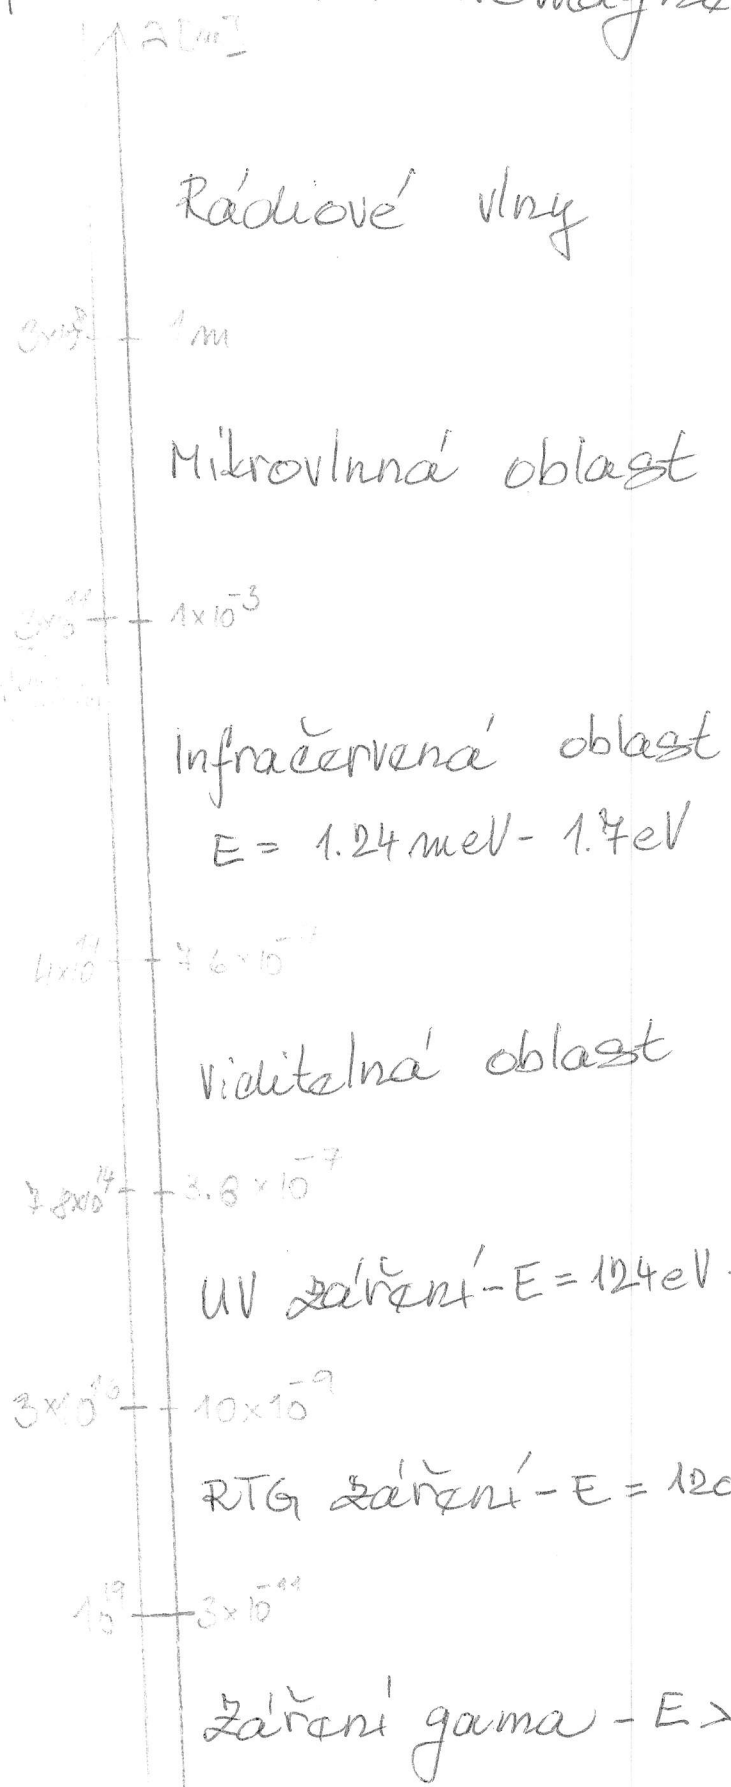 λ [m]
Rádiové vlny
3×10⁸ 1m
Mikrovlnná oblast
3×10¹¹ 1×10⁻³
Infračervená oblast
E = 1.24 meV - 1.7 eV
4×10¹⁴ 7.6×10
Viditelná oblast
7.8×10¹⁴ 3.8×10⁻⁷
UV záření - E = 124 eV
3×10¹⁶ 10×10⁻⁹
RTG záření - E =
10¹⁹ 3×10⁻¹¹
Záření gama - E >